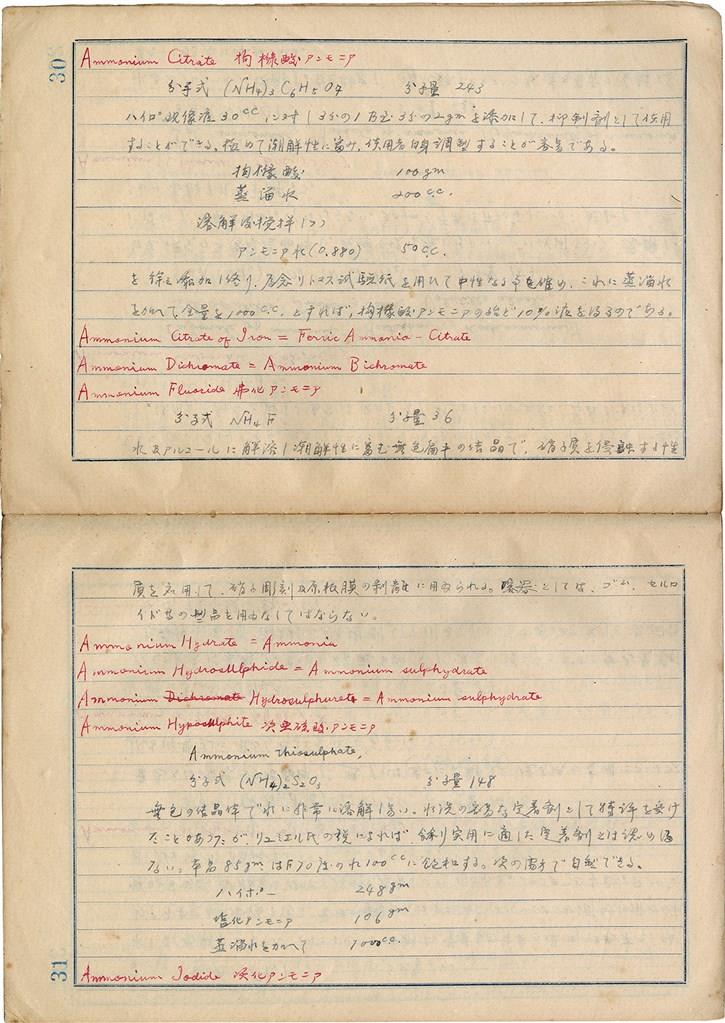 30
Ammonium Citrate 拘櫞酸アンモニア
分子式 (NH4)3C6H5O7 分子量 243
ハイポ現像液30ccに対し3分の1乃至3分の2gmを添加して、抑制剤として使用
することができる。極めて潮解性に富み、使用者自身調製することが容易である。
拘櫞酸 100gm
蒸溜水 200c.c.
溶解後攪拌しつつ
アンモニア水(0.880) 50cc.
を徐々に添加し終り、リトマス試験紙を用ひて中性なる事を確め、これに蒸溜水
を加へて、全量を1000c.c.とすれば、拘櫞酸アンモニアの殆ど10%液を得るのである。
Ammonium Citrate of Iron = Ferric Ammonio-Citrate
Ammonium Dichromate = Ammonium Bichromate
Ammonium Fluoride 弗化アンモニア
分子式 NH4F 分子量 36
水及アルコールに解溶し潮解性に富む無色扁平の結晶で、硝子質を侵蝕する性
質を応用して、硝子彫刻及原板膜の剥離に用ゐられる。容器としては、ゴム、セルロ
イド等の製品を用ゐなくてはならない。
Ammonium Hydrate = Ammonia
Ammonium Hydrosulphide = Ammonium sulphydrate
Ammonium Dichromate Hydrosulphuret = Ammonium sulphydrate
Ammonium Hyposulphite 次亜硫酸アンモニア
Ammonium thiosulphate,
分子式 (NH4)2S2O3 分子量 148
無色の結晶体で水に非常に溶解し易い。水洗の容易な定着剤として特許を受け
たことがあつたが、リュミエル氏の説によれば、余り実用に適した定着剤とは認め得
ない。本品85gmはF70度の水100ccに飽和する。次の高方で自製できる。
ハイポー 248gm
塩化アンモニア 106gm
蒸溜水を加へて 1000cc.
31
Ammonium Iodide 沃化アンモニア